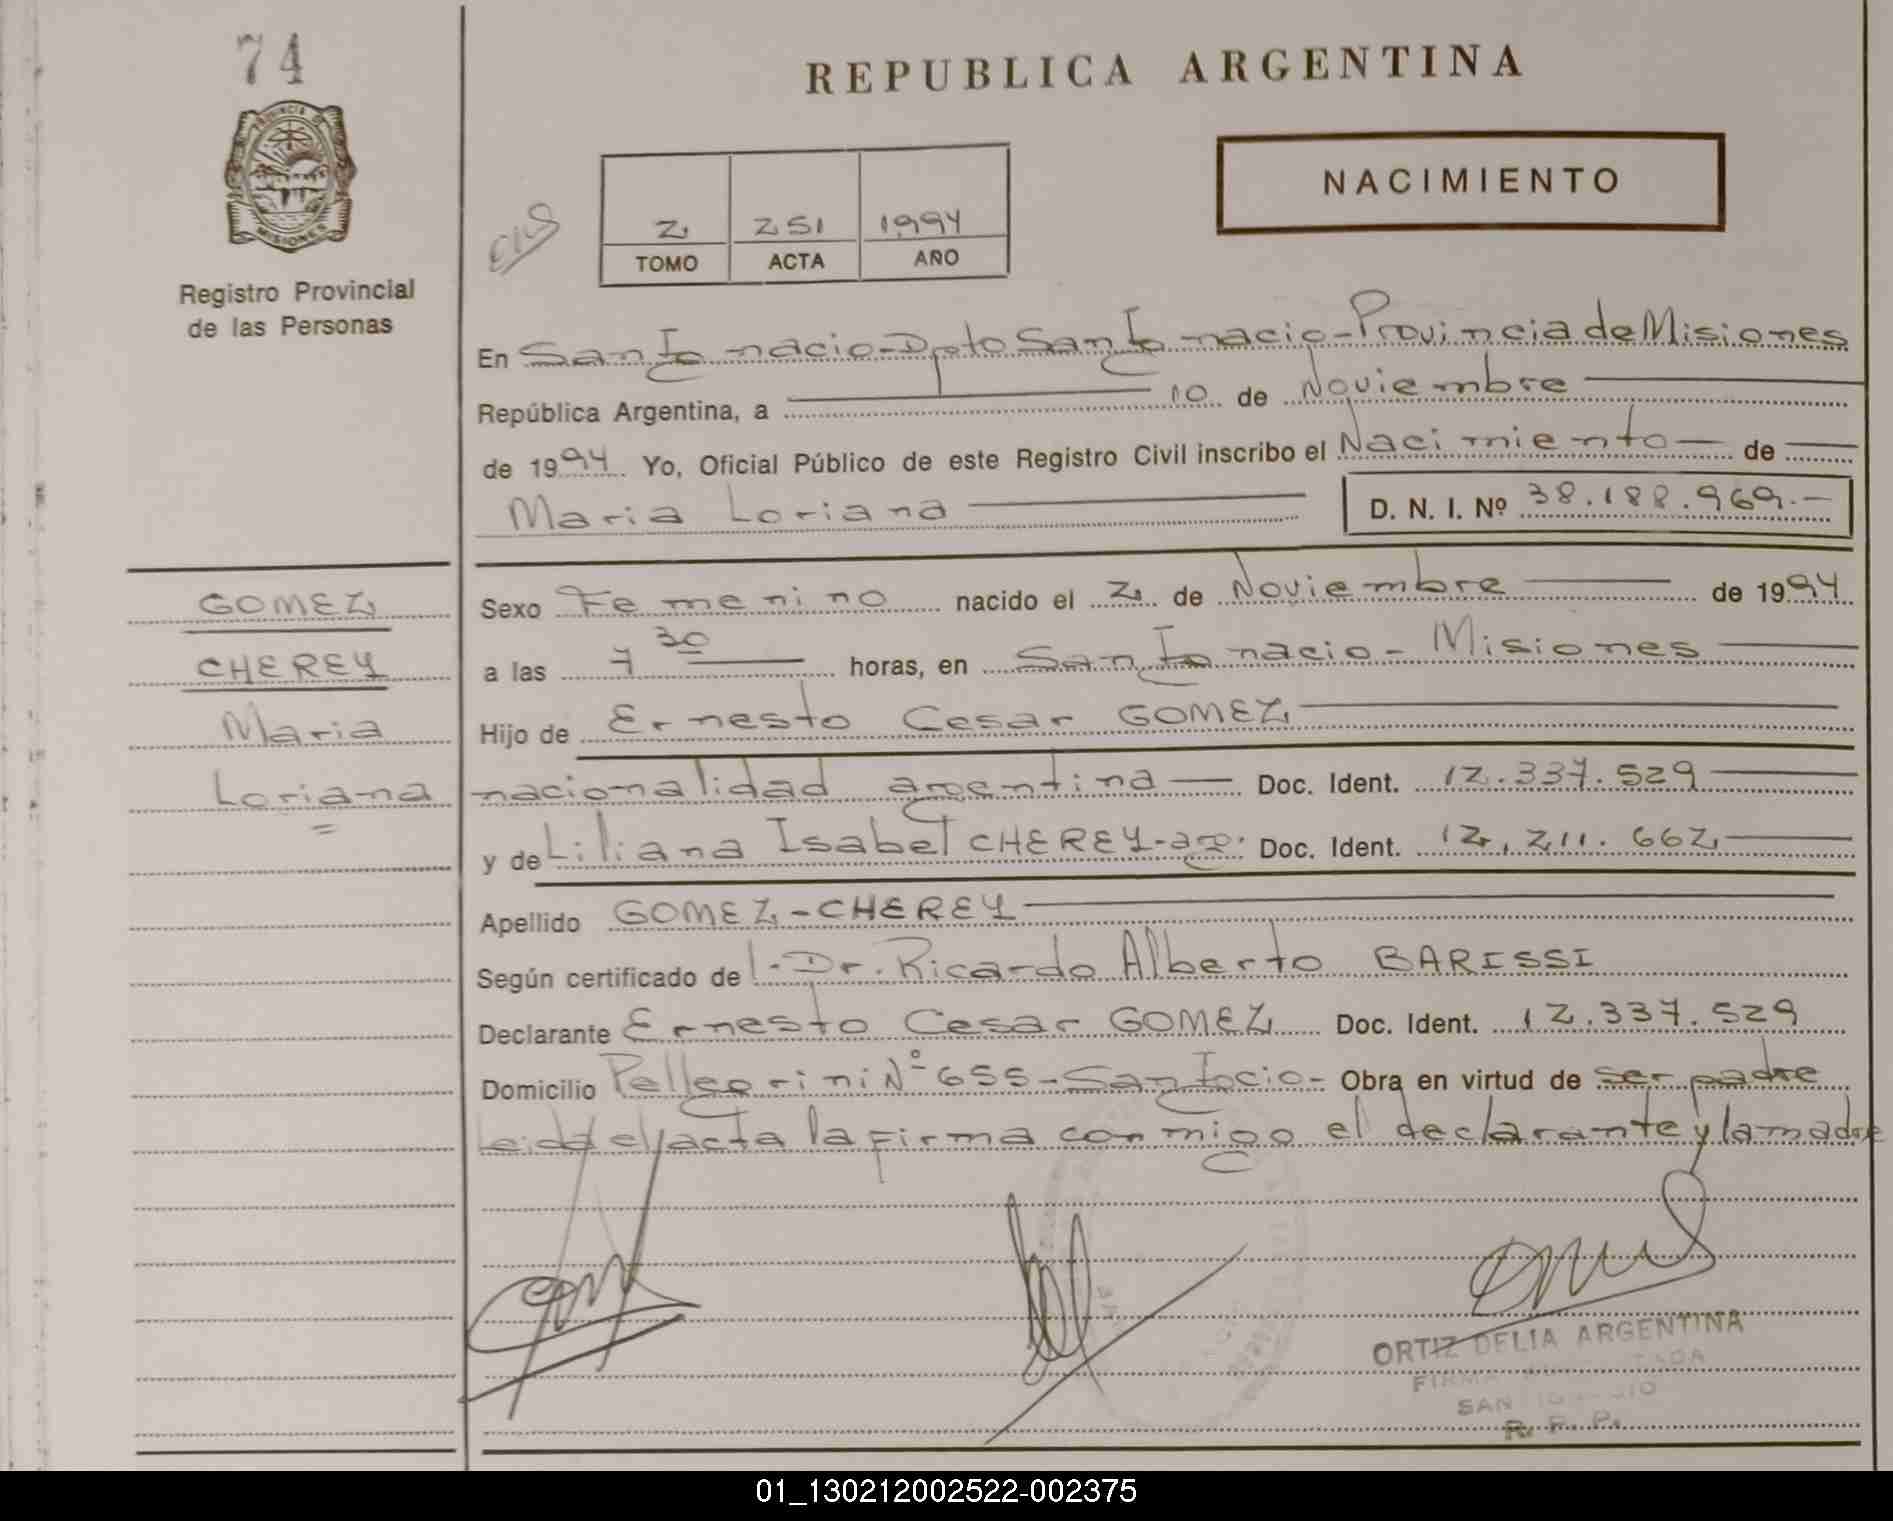 74
REPUBLICA ARGENTINA
PROVINCIA DE
MISIONES
Registro Provincial
de las Personas
NACIMIENTO
2 251 1994
TOMO ACTA AÑO
En San Ignacio-Dpto San Ignacio-Provincia de Misiones
República Argentina, a 10 de Noviembre
de 1994 Yo, Oficial Público de este Registro Civil inscribo el Nacimiento de
Maria Loriana D. N. I. Nº 38.188.969.-
GOMEZ
CHEREY
Maria
Loriana
Sexo Femenino nacido el 2 de Noviembre de 1994
a las 7 30 horas, en San Ignacio - Misiones
Hijo de Ernesto Cesar GOMEZ
nacionalidad argentina Doc. Ident. 12.337.529
y de Liliana Isabel CHEREY-arg. Doc. Ident. 12.211.662
Apellido GOMEZ-CHEREY
Según certificado de l.-Dr. Ricardo Alberto BARISSI
Declarante Ernesto Cesar GOMEZ Doc. Ident. 12.337.529
Domicilio Pellegrini Nº 655-San Igcio- Obra en virtud de ser padre
Leida el acta la firma conmigo el declarante y la madre
ORTIZ DELIA ARGENTINA
SAN IGNACIO
R. P. P.
01_130212002522-002375